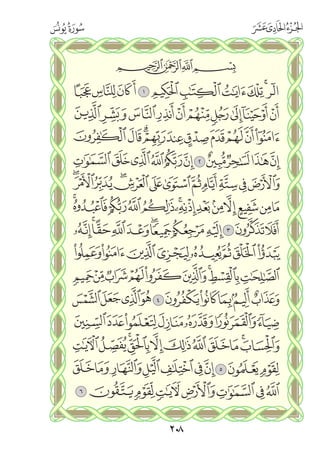 سُورَةُ يُونُسَ
الجُزْءُ الحَادِيَ عَشَرَ
بِسْمِ ٱللَّهِ ٱلرَّحْمَٰنِ ٱلرَّحِيمِ
الٓر ۚ تِلْكَ ءَايَٰتُ ٱلْكِتَٰبِ ٱلْحَكِيمِ ١ أَكَانَ لِلنَّاسِ عَجَبًا
أَنْ أَوْحَيْنَآ إِلَىٰ رَجُلٍ مِّنْهُمْ أَنْ أَنذِرِ ٱلنَّاسَ وَبَشِّرِ ٱلَّذِينَ
ءَامَنُوٓا۟ أَنَّ لَهُمْ قَدَمَ صِدْقٍ عِندَ رَبِّهِمْ ۗ قَالَ ٱلْكَٰفِرُونَ
إِنَّ هَٰذَا لَسَٰحِرٌ مُّبِينٌ ٢ إِنَّ رَبَّكُمُ ٱللَّهُ ٱلَّذِى خَلَقَ ٱلسَّمَٰوَٰتِ
وَٱلْأَرْضَ فِى سِتَّةِ أَيَّامٍ ثُمَّ ٱسْتَوَىٰ عَلَى ٱلْعَرْشِ ۖ يُدَبِّرُ ٱلْأَمْرَ ۖ
مَا مِن شَفِيعٍ إِلَّا مِنۢ بَعْدِ إِذْنِهِۦ ۚ ذَٰلِكُمُ ٱللَّهُ رَبُّكُمْ فَٱعْبُدُوهُ ۚ
أَفَلَا تَذَكَّرُونَ ٣ إِلَيْهِ مَرْجِعُكُمْ جَمِيعًا ۖ وَعْدَ ٱللَّهِ حَقًّا ۚ إِنَّهُۥ
يَبْدَؤُا۟ ٱلْخَلْقَ ثُمَّ يُعِيدُهُۥ لِيَجْزِىَ ٱلَّذِينَ ءَامَنُوا۟ وَعَمِلُوا۟
ٱلصَّٰلِحَٰتِ بِٱلْقِسْطِ ۚ وَٱلَّذِينَ كَفَرُوا۟ لَهُمْ شَرَابٌ مِّنْ حَمِيمٍ
وَعَذَابٌ أَلِيمٌۢ بِمَا كَانُوا۟ يَكْفُرُونَ ٤ هُوَ ٱلَّذِى جَعَلَ ٱلشَّمْسَ
ضِيَآءً وَٱلْقَمَرَ نُورًا وَقَدَّرَهُۥ مَنَازِلَ لِتَعْلَمُوا۟ عَدَدَ ٱلسِّنِينَ
وَٱلْحِسَابَ ۚ مَا خَلَقَ ٱللَّهُ ذَٰلِكَ إِلَّا بِٱلْحَقِّ ۚ يُفَصِّلُ ٱلْـَٔايَٰتِ
لِقَوْمٍ يَعْلَمُونَ ٥ إِنَّ فِى ٱخْتِلَٰفِ ٱلَّيْلِ وَٱلنَّهَارِ وَمَا خَلَقَ
ٱللَّهُ فِى ٱلسَّمَٰوَٰتِ وَٱلْأَرْضِ لَـَٔايَٰتٍ لِّقَوْمٍ يَتَّقُونَ ٦
٢٠٨